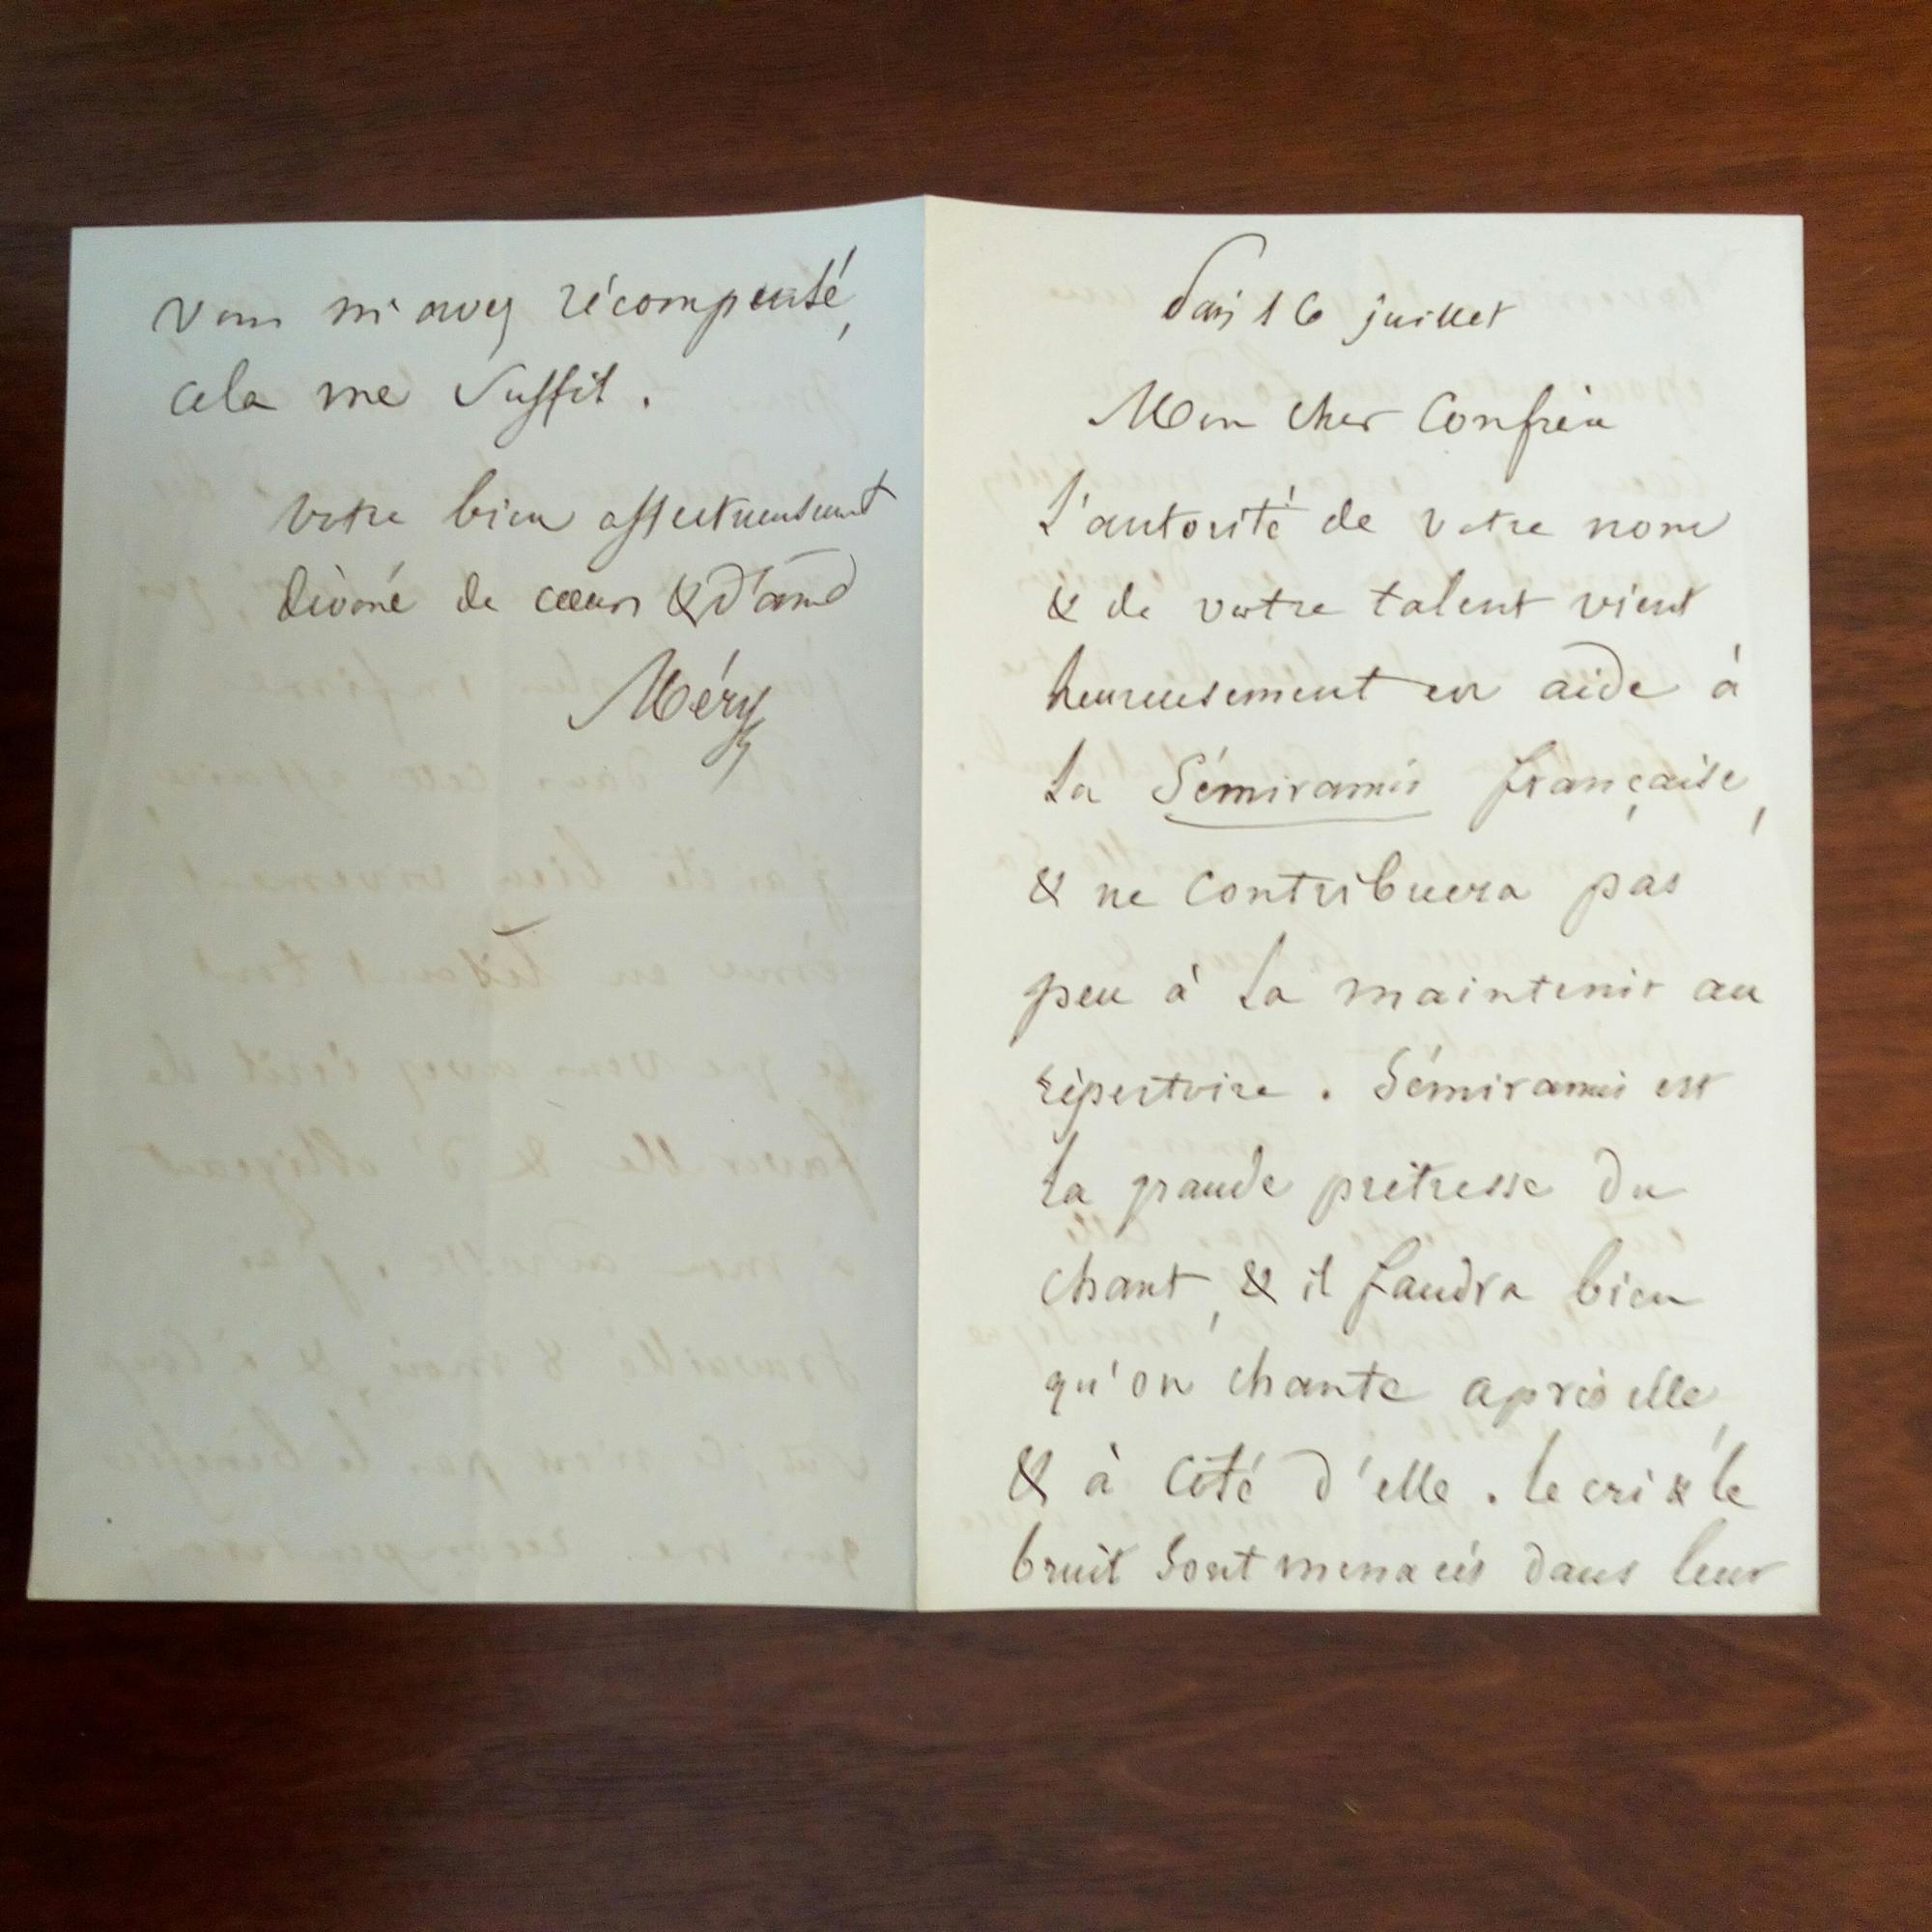 Paris 16 juillet
Mon cher Confrère
L'autorité de votre nom
& de votre talent vient
heureusement en aide à
La Sémiramis française,
& ne contribuera pas
peu à La maintenir au
répertoire. Sémiramis est
La grande prêtresse du
chant, & il faudra bien
qu'on chante après elle,
& à côté d'elle. le cri & le
bruit sont menacés dans leur
vous m'avez récompensé,
cela me suffit.
votre bien affectueusement
dévoué de cœur & d'âme
Méry